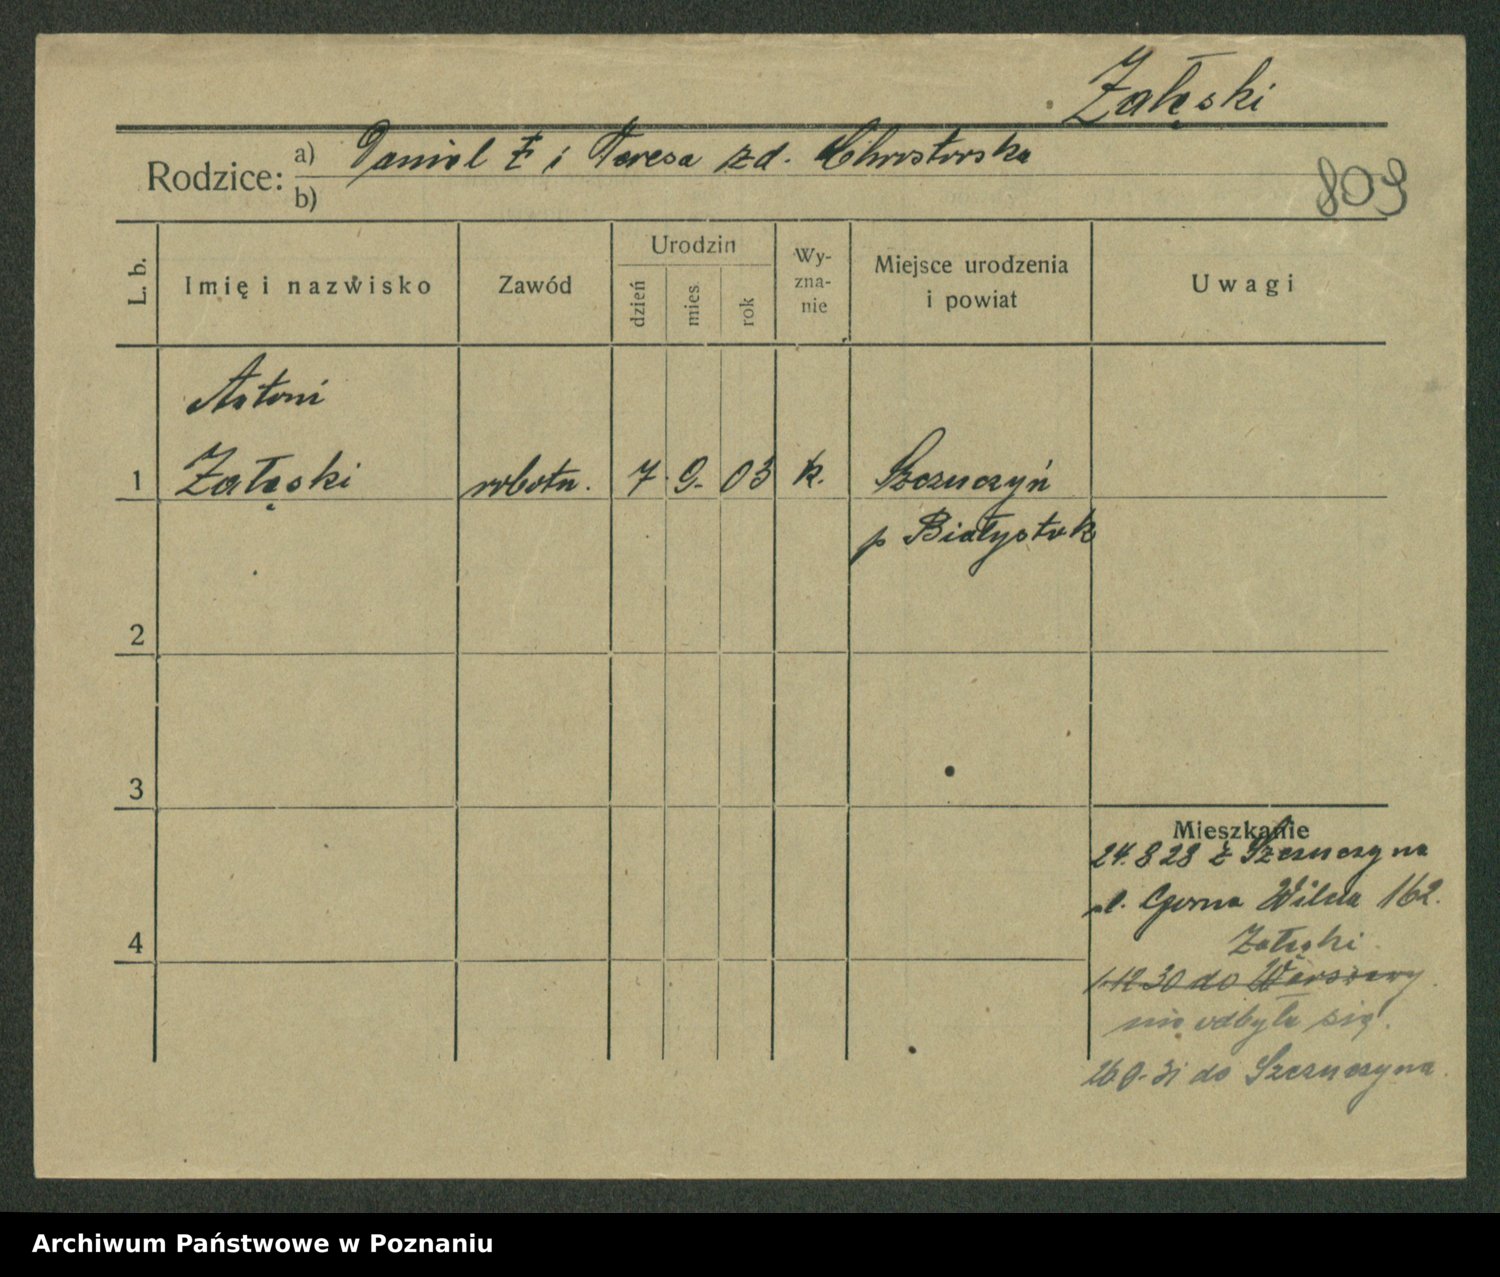 Załęski
Rodzice: a) Daniel Z i Teresa zd. Chrostowska
b)
809
L. b.
Imię i nazwisko
Zawód
Urodzin
dzień
mies.
rok
Wy-
zna-
nie
Miejsce urodzenia
i powiat
Uwagi
Antoni
1 Załęski robotn. 7. 9. 03 k. Szczuczyń
p Białystok
2
3
4
Mieszkanie
24.8 28 z Szczuczyna
Górna Wilda 162.
Załęski
1.12 30 do Warszawy
nie odbyła się.
26 9. 31 do Szczuczyna.
Archiwum Państwowe w Poznaniu